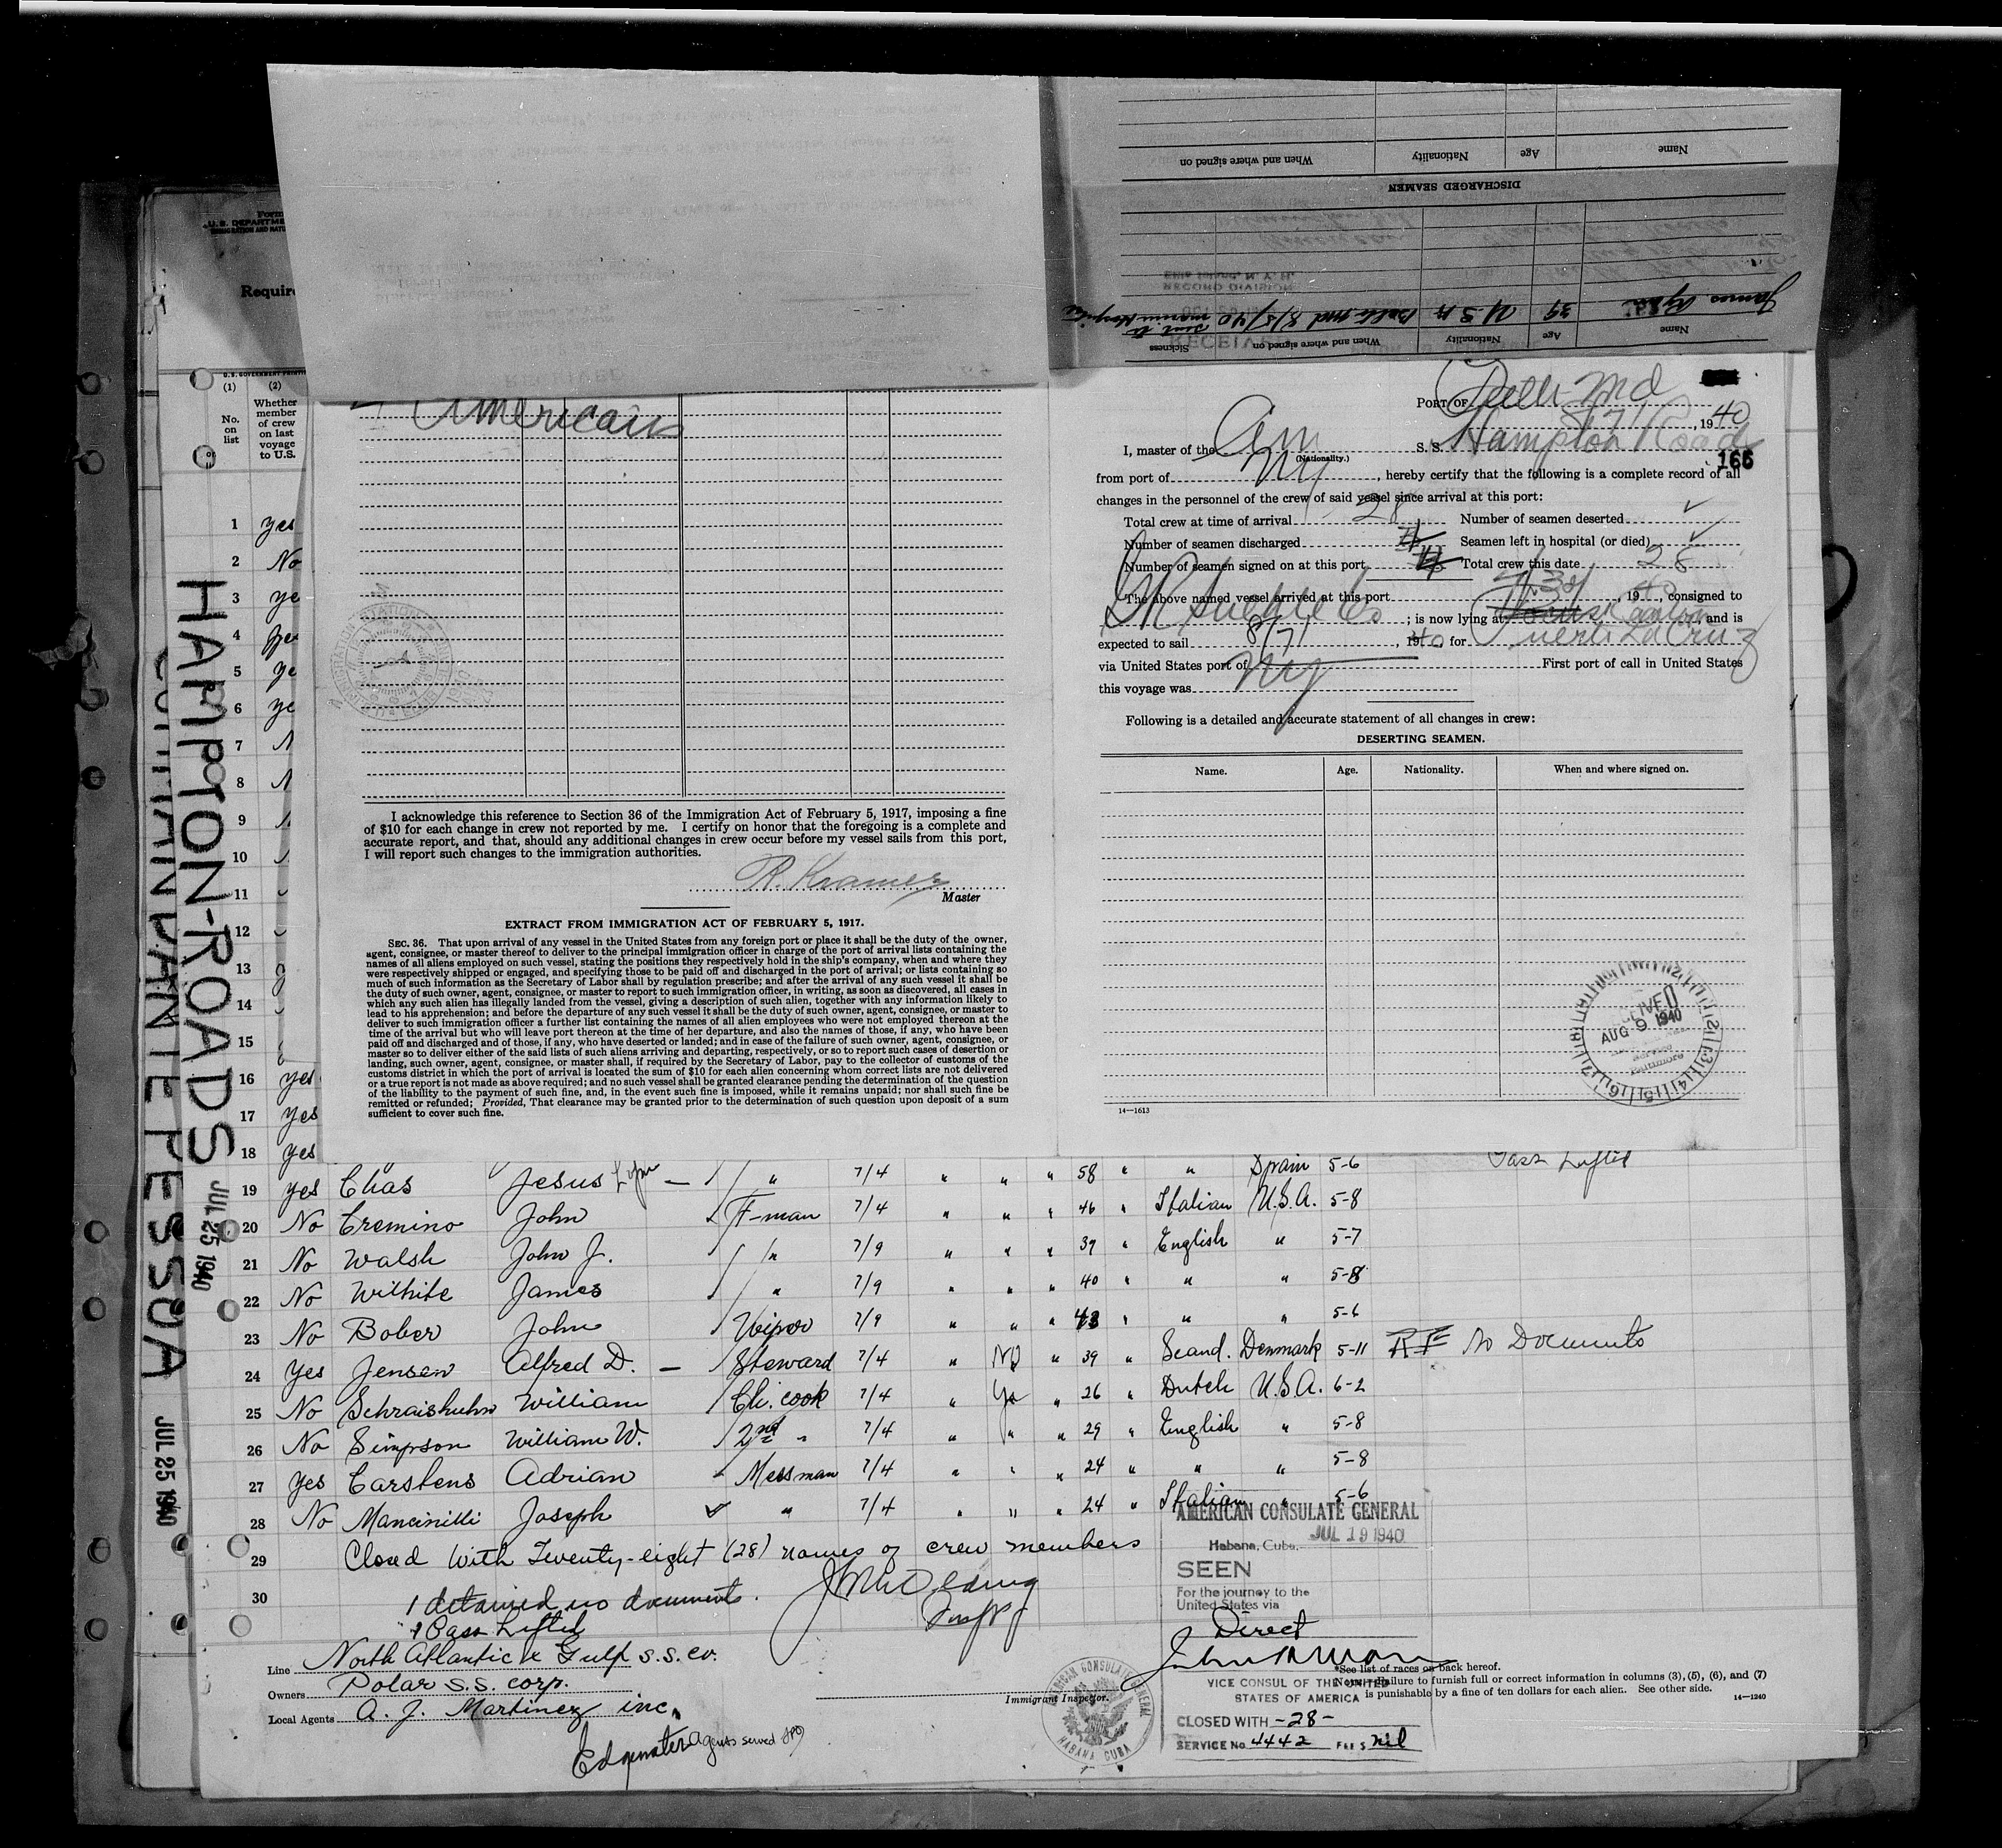 Form
U.S. DEPARTME
IMMIGRATION AND NATU
Require
U.S. GOVERNMENT PRINTIN
(1) (2)
No. on list
Whether member of crew on last voyage to U.S.
1 yes
2 No
3 ye
4 ye
5 ye
6 ye
7 N
8 N
9
10
11
12
13
14
15
16 yes
17 yes
18 yes
HAMPTON-ROADS JUL 25 1940
JUL 25 1940
Name Age Nationality When and where signed on
DISCHARGED SEAMEN
RECORD DIVISION
James Ryan 39 U S A Balto md 8/5/40 sent to marine Hospital
Name Age Nationality When and where signed on Sickness
RECEIVED
American
I acknowledge this reference to Section 36 of the Immigration Act of February 5, 1917, imposing a fine
of $10 for each change in crew not reported by me. I certify on honor that the foregoing is a complete and
accurate report, and that, should any additional changes in crew occur before my vessel sails from this port,
I will report such changes to the immigration authorities.
R. Kramer
Master
EXTRACT FROM IMMIGRATION ACT OF FEBRUARY 5, 1917.
SEC. 36. That upon arrival of any vessel in the United States from any foreign port or place it shall be the duty of the owner,
agent, consignee, or master thereof to deliver to the principal immigration officer in charge of the port of arrival lists containing the
names of all aliens employed on such vessel, stating the positions they respectively hold in the ship's company, when and where they
were respectively shipped or engaged, and specifying those to be paid off and discharged in the port of arrival; or lists containing so
much of such information as the Secretary of Labor shall by regulation prescribe; and after the arrival of any such vessel it shall be
the duty of such owner, agent, consignee, or master to report to such immigration officer, in writing, as soon as discovered, all cases in
which any such alien has illegally landed from the vessel, giving a description of such alien, together with any information likely to
lead to his apprehension; and before the departure of any such vessel it shall be the duty of such owner, agent, consignee, or master to
deliver to such immigration officer a further list containing the names of all alien employees who were not employed thereon at the
time of the arrival but who will leave port thereon at the time of her departure, and also the names of those, if any, who have been
paid off and discharged and of those, if any, who have deserted or landed; and in case of the failure of such owner, agent, consignee, or
master so to deliver either of the said lists of such aliens arriving and departing, respectively, or so to report such cases of desertion or
landing, such owner, agent, consignee, or master shall, if required by the Secretary of Labor, pay to the collector of customs of the
customs district in which the port of arrival is located the sum of $10 for each alien concerning whom correct lists are not delivered
or a true report is not made as above required; and no such vessel shall be granted clearance pending the determination of the question
of the liability to the payment of such fine, and, in the event such fine is imposed, while it remains unpaid; nor shall such fine be
remitted or refunded; Provided, That clearance may be granted prior to the determination of such question upon deposit of a sum
sufficient to cover such fine.
PORT OF Md
8/7, 1940
I, master of the Am (Nationality.) S. S. Hampton Roads
166
from port of NY, hereby certify that the following is a complete record of all
changes in the personnel of the crew of said vessel since arrival at this port:
Total crew at time of arrival 28 Number of seamen deserted ✓
Number of seamen discharged 4 Seamen left in hospital (or died) ✓
Number of seamen signed on at this port 4 Total crew this date 28
The above named vessel arrived at this port 7/30, 1940, consigned to
; is now lying at Canton and is
expected to sail 8/7, 1940, for Puerto La Cruz
via United States port of NY First port of call in United States
this voyage was
Following is a detailed and accurate statement of all changes in crew:
DESERTING SEAMEN.
Name. Age. Nationality. When and where signed on.
RECEIVED
AUG 9 1940
Baltimore
14—1613
19 yes Chas Jesus — / " 7/4 " " " 58 " " Spain 5-6 Pass Lifted
20 No Cremino John F-man 7/4 " " " 46 " Italian U.S.A. 5-8
21 No Walsh John J. / " 7/9 " " " 39 " English " 5-7
22 No Wilhite James / " 7/9 " " " 40 " " " 5-8
23 No Bober John / Wiper 7/9 " " " 43 " " " 5-6
24 Yes Jensen Alfred D. — / Steward 7/4 " NO " 39 " Scand. Denmark 5-11 No Documents
25 No Schraishuhn William / Ch. cook 7/4 " Yes " 26 " Dutch U.S.A. 6-2
26 No Simpson William W. / 2nd " 7/4 " " " 29 " English " 5-8
27 yes Carstens Adrian Messman 7/4 " " " 24 " " " 5-8
28 No Mancinilli Joseph ✓ " 7/4 " " " 24 " Italian " 5-6
29 Closed with Twenty-eight (28) names of crew members
30
1 detained no documents.
1 Pass Lifted
AMERICAN CONSULATE GENERAL
JUL 19 1940
Habana, Cuba.
SEEN
For the journey to the
United States via
Direct
VICE CONSUL OF THE UNITED
STATES OF AMERICA
CLOSED WITH -28-
SERVICE No. 4442 FEES nil
AMERICAN CONSULATE GENERAL
HABANA CUBA
Line North Atlantic & Gulf S.S. Co.
Owners Polar S.S. Corp.
Local Agents A. J. Martinez inc.
Edgewater Agents served
Immigrant Inspector.
*See list of races on back hereof.
Note.—Failure to furnish full or correct information in columns (3), (5), (6), and (7)
is punishable by a fine of ten dollars for each alien. See other side.
14—1240